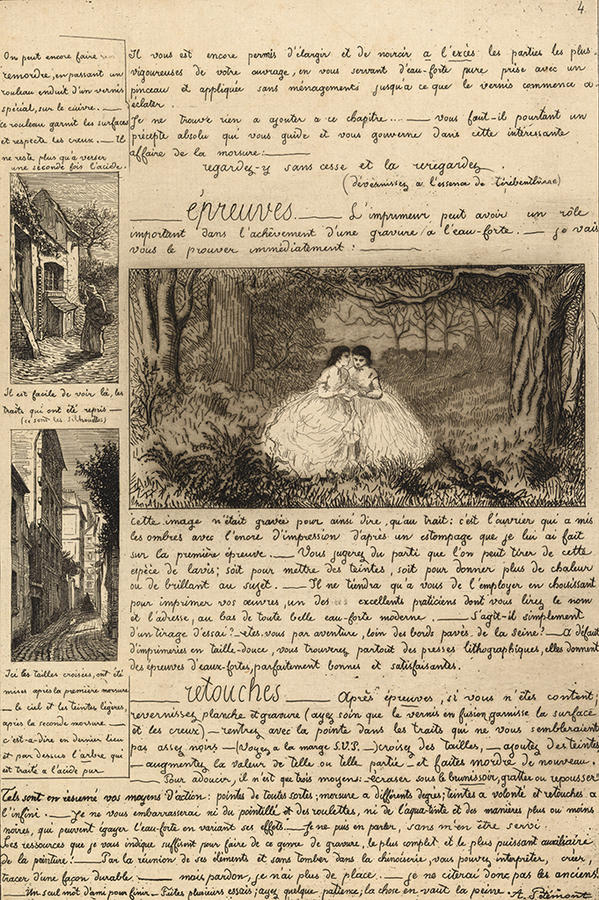 4
On peut encore faire
remordre, en passant un
rouleau enduit d'un vernis
spécial, sur le cuivre. —
ce rouleau garnit les surfaces
et respecte les creux. — Il
ne reste plus qu'à verser
une seconde fois l'acide.
Il est facile de voir là, les
traits qui ont été repris —
(ce sont les silhouettes)
Ici les tailles croisées, ont été
mises après la première morsure
— le ciel et les teintes légères,
après la seconde morsure —
c'est-à-dire en dernier lieu
et par dessus l'arbre qui
est traité à l'acide pur
Il vous est encore permis d'élargir et de noircir à l'excès les parties les plus
vigoureuses de votre ouvrage, en vous servant d'eau-forte pure prise avec un
pinceau et appliquée sans ménagements jusqu'à ce que le vernis commence à
éclater.
Je ne trouve rien à ajouter à ce chapitre... — vous faut-il pourtant un
précepte absolu qui vous guide et vous gouverne dans cette intéressante
affaire de la morsure: —
regardez-y sans cesse et la reregardez
(dévernissez à l'essence de térébenthine)
— épreuves. — L'imprimeur peut avoir un rôle
important dans l'achèvement d'une gravure à l'eau-forte. — Je vais
vous le prouver immédiatement : —
cette image n'était gravée pour ainsi dire, qu'au trait: c'est l'ouvrier qui a mis
les ombres avec l'encre d'impression d'après un estompage que je lui ai fait
sur la première épreuve. — Vous jugerez du parti que l'on peut tirer de cette
espèce de lavis; soit pour mettre des teintes, soit pour donner plus de chaleur
ou de brillant au sujet. — Il ne tiendra qu'à vous de l'employer en choisissant
pour imprimer vos œuvres, un des excellents praticiens dont vous lirez le nom
et l'adresse, au bas de toute belle eau-forte moderne. — S'agit-il simplement
d'un tirage d'essai? — êtes-vous par aventure, loin des bords pavés de la Seine? — A défaut
d'imprimeries en taille-douce, vous trouverez partout des presses lithographiques, elles donnent
des épreuves d'eaux-fortes, parfaitement bonnes et satisfaisantes.
— retouches — Après épreuves, si vous n'êtes content;
revernissez planche et gravure (ayez soin que le vernis en fusion garnisse la surface
et les creux) — rentrez avec la pointe dans les traits qui ne vous sembleraient
pas assez noirs — (Voyez à la marge S.V.P. —) croisez des tailles, — ajoutez des teintes
— augmentez la valeur de telle ou telle partie — et faites mordre de nouveau. —
— Pour adoucir, il n'est que trois moyens: écraser sous le brunissoir, gratter ou repousser
Tels sont en résumé vos moyens d'action: pointes de toutes sortes; morsure à différents degrés; teintes à volonté et retouches à
l'infini. — Je ne vous embarrasserai ni du pointillé et des roulettes, ni de l'aqua-tinte et des manières plus ou moins
noires, qui peuvent égayer l'eau-forte en variant ses effets — Je ne puis en parler, sans m'en être servi.
Les ressources que je vous indique suffisent pour faire de ce genre de gravure, le plus complet et le plus puissant auxiliaire
de la peinture! — Par la réunion de ses éléments et sans tomber dans la chinoiserie, vous pouvez interpréter, créer,
tracer d'une façon durable — mais, pardon, je n'ai plus de place. — je ne citerai donc pas les anciens!
— Un seul mot d'ami pour finir. — Faites plusieurs essais; ayez quelque patience; la chose en vaut la peine. A. Potémont